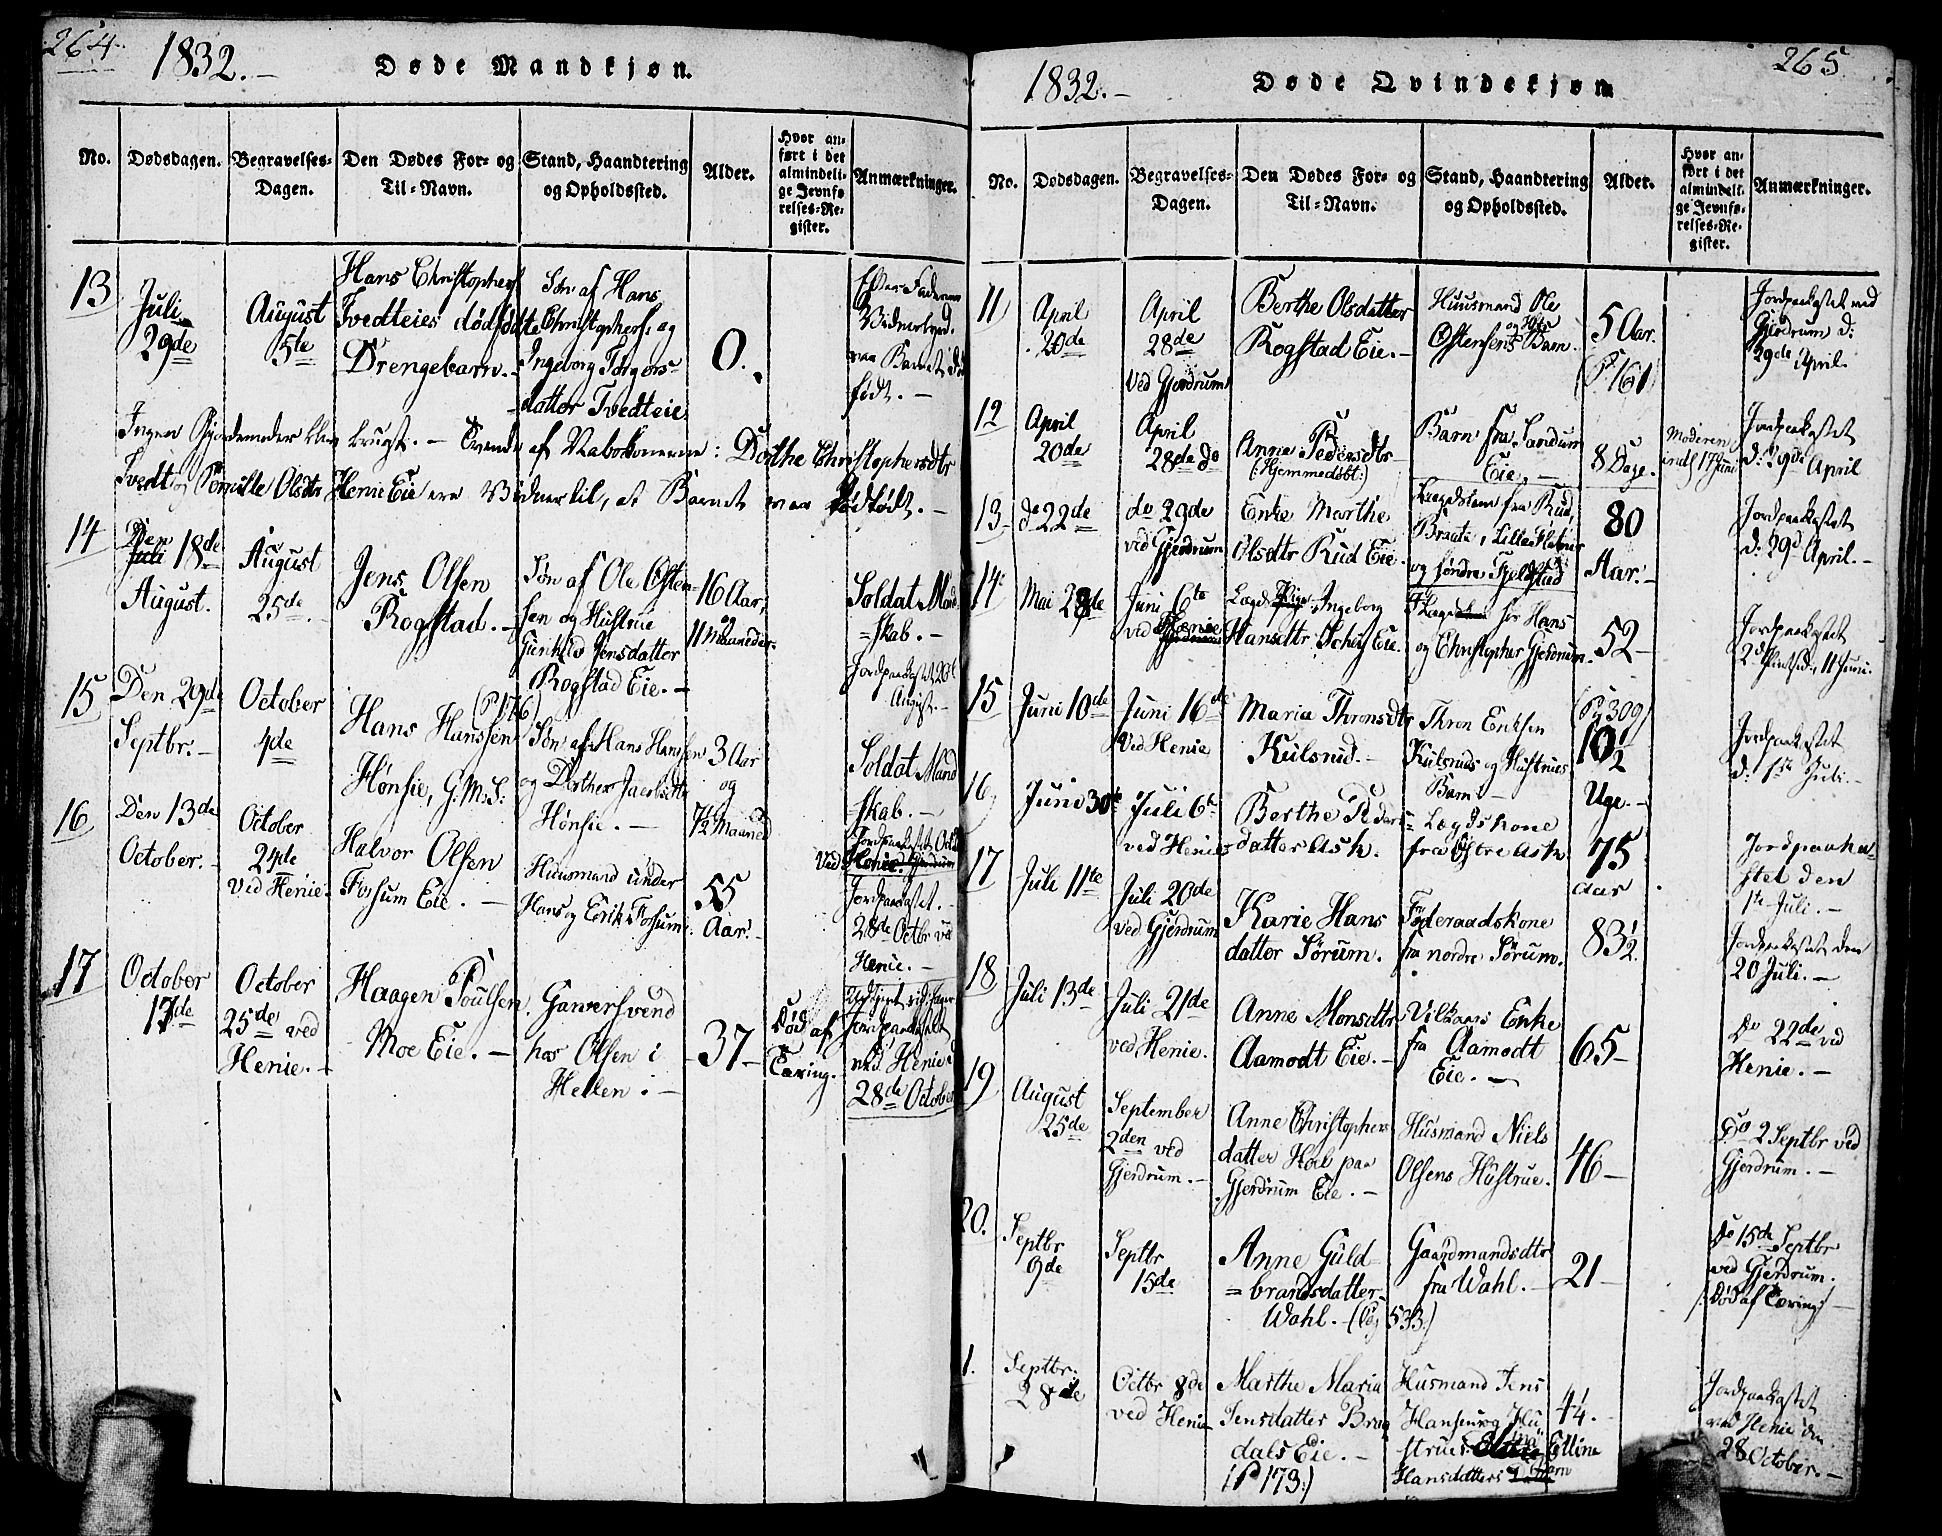 264.
1832.-
Døde Mandkjøn.
No.
Dødsdagen.
Begravelses-
Dagen.
Den Dødes For- og
Til-Navn.
Stand, Haandtering
og Opholdssted.
Alder.
Hvor an-
ført i det
almindeli-
ge Jevnfø-
relses-Re-
gister.
Anmærkninger.
13
Juli
29de
August
5te
Hans Christophers
Tvedteies dødfødte
Drengebarn.-
Søn af Hans
Christophers. og
Ingeborg Torgers-
datter Tvedteie
0.
Efter Faderens
Vidnesbyrd
var Barnet død
født.-
Ingen Gjordemoder blev brugt.- Tvende af Nabokonerne: Dorthe Christophersdtr
Tvedt og Pernille Olsdtr Henie Eie ere Vidner til, at Barnet var dødfødt.-
14
Den
18de
August.
August
25de.
Jens Olsen
Rogstad.-
Søn af Ole Østen-
sen og Hustrue
Gunhild Jensdatter
Rogstad Eie.-
16 Aar,
og
11 Maaneder.
Soldat Mand
=skab.-
Jordpaakastet 26de
August.-
15
Den 29de
Septbr.-
October
4de
(P 176)
Hans Hanssen
Hønsie, G.M.S:
Søn af Hans Hanssen
og Dorthe Jacobsdtr
Hønsie.-
3 Aar
og
7½ Maaned
Soldat Mand
skab.-
Jordpaakastet Octbr
Ved Henie.
16
Den 13de
October.-
October
24de
ved Henie.
Halvor Olsen
Fossum Eie.-
Huusmand under
Hans og Erik Fossum.
55
Aar.-
Jordpaakastet.-
28de Octbr ved
Henie.-
17
October
17de
October
25de ved
Henie.-
Haagen Poulsen
Moe Eie.-
Garversvend
hos Olsen i
Hellen.-
37-
Død af
Tæring.
Jordpaakastet
ved Henie d
28de October
265
1832.-
Døde Qvindekjøn
No.
Dødsdagen.
Begravelses-
Dagen.
Den Dødes For- og
Til-Navn.
Stand, Haandtering
og Opholdssted.
Alder.
Hvor an-
ført i det
almindeli-
ge Jevnfø-
relses-Re-
gister.
Anmærkninger.
11
April
20de
April
28de
Ved Gjerdrum
Berthe Olsdatter
Rogstad Eie.-
Huusmand Ole
Østensens og Htrs Barn.
5 Aar.
(P. 161)
Jordpaakastet ved
Gjerdrum d:
29de April.
12
April
20de
April
28de do
Anne Pedersdtr
(:Hjemmedøbt:)
Barn fra Sandum
Eie.-
8 Dage.
Moderen
indl 17 Juni
Jordpaakastet
d: 29de April
13
do 22de
do 29de
ved Gjerdrum
Enke Marthe
Olsdtr Rud Eie.
Lægdslem fra Rud,
Braate, Lille Fladner
og søndre Fjeldstad
80
Aar.-
Jordpaakastet
d: 29de April.-
14.
Mai 28de
Juni 6te
ved Henie
Lægds Pige Ingeborg
Hansdtr Ocher Eie.
hos Hans
og Christopher Gjerdrum.
52-
Jordpaakastet
2d Pintsed: 11 Juni.
15
Juni 10de
Juni 16de
Ved Henie
Maria Thronsdtr
Kulsrud.-
Thron Eriksen
Kulsruds og Hustrues
Barn.-
(P. 309)
10½
Uge.-
Jordpaakastet
d: 1ste Juli.-
16
Juni 30te
Juli 6te
ved Henie
Berthe Peders=
datter Ask.
Lægdskone
fra Østre Ask.
75
Aar
Jordpaaka-
stet den
1ste Juli.-
17
Juli 11te
Juli 20de
ved Gjerdrum
Karie Hans
datter Sørum.
Føderaadskone
fra nordre Sørum.
83½
Jordpaakastet den
20 Juli.-
18
Juli 13de
Juli 21de
ved Henie.
Anne Monsdtr
Aamodt Eie.-
Vilkaars Enke
fra Aamodt
Eie.-
65-
Do 22de ved
Henie.-
19
August
25de
September
2den ved
Gjerdrum.-
Anne Christophers
datter Hoel paa
Gjerdrum Eie.-
Husmand Niels
Olsens Hustrue.
46-
Do 2 Septbr ved
Gjerdrum.-
20.
Septbr
9de
Septbr
15de
Anne Guld-
=brandsdatter
Wahl.- (Pag 533.)
Gaardmandsdtr
fra Wahl.-
21-
Do 15de Septbr
ved Gjerdrum.
/:Død af Tæring:/-
1.
Septbr.
28de
Octbr 8de
ved Henie
Marthe Maria
Jensdatter Brag
dals Eie.-
(P 173:)
Husmand Jens
Hansens og Hu
strues Elline
Hansdatters Barn
4¼.
Jordpaakastet
ved Henie den
28 October.-